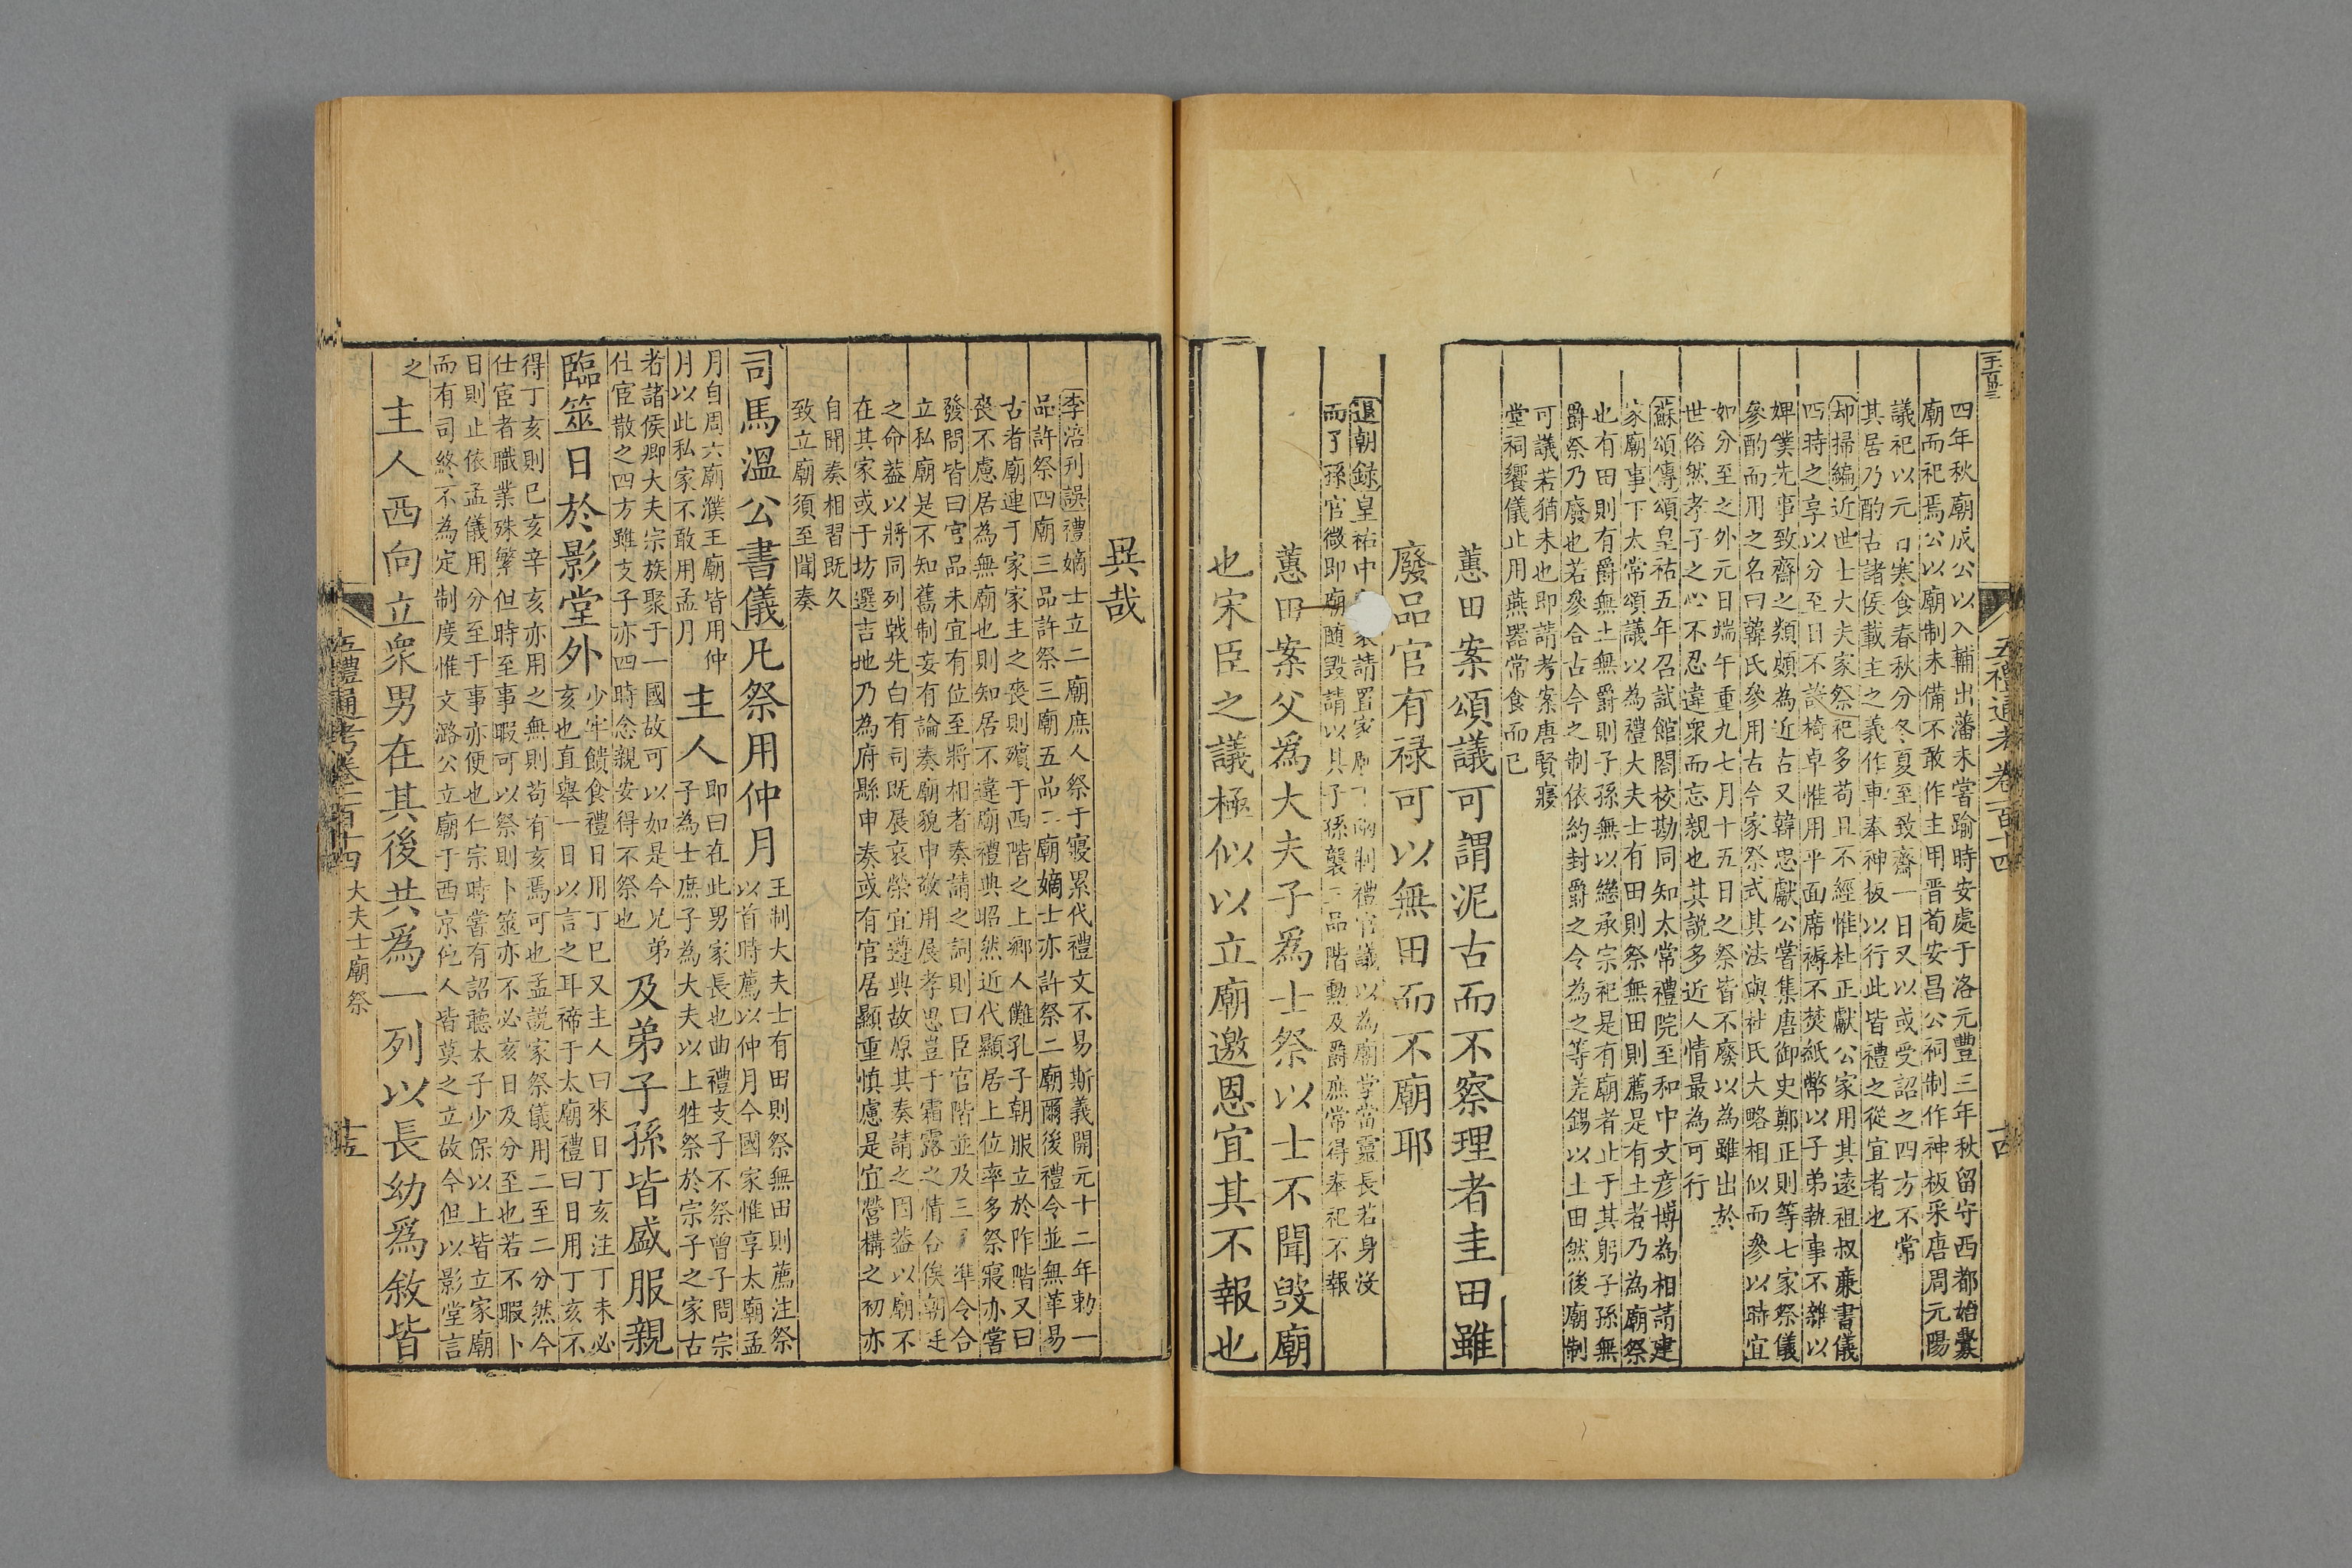 四年秋廟成公以入輔出藩未嘗踰時安處于洛元豐三年秋留守西都始釁
廟而祀焉公以廟制未備不敢作主用晋荀安昌公祠制作神板采唐周元陽
議祀以元日寒食春秋分冬夏至致齋一日又以或受詔之四方不常
其居乃酌古諸侯載主之義作車奉神板以行此皆禮之從宜者也
却掃編近世士大夫家祭祀多苟且不經惟杜正獻公家用其遠祖叔廉書儀
四時之享以分至日不設椅卓惟用平面席褥不焚紙幣以子弟執事不雜以
婢僕先事致齋之類頗為近古又韓忠獻公嘗集唐御史鄭正則等七家祭儀
參酌而用之名曰韓氏參用古今家祭式其法與社氏大略相似而參以時宜
如分至之外元日端午重九七月十五日之祭皆不廢以為雖出於
世俗然孝子之心不忍違衆而忘親也其説多近人情最為可行
蘇頌傳頌皇祐五年召試館閣校勘同知太常禮院至和中文彦博為相請建
家廟事下太常頌議以為禮大夫士有田則祭無田則薦是有土者乃為廟祭
也有田則有爵無土無爵則子孫無以繼承宗祀是有廟者止于其躬子孫無
爵祭乃廢也若參合古今之制依約封爵之令為之等差錫以土田然後廟制
可議若猶未也即請考案唐賢寢
堂祠饗儀止用燕器常食而已
蕙田案頌議可謂泥古而不察理者圭田雖
廢品官有禄可以無田而不廟耶
退朝録皇祐中請置家廟下兩制禮官議以為廟室當靈長若身没
而子孫官微即廟随毁請以其子孫襲三品階勲及爵庶常得奉祀不報
蕙田案父爲大夫子爲士祭以士不聞毁廟
也宋臣之議極似以立廟邀恩宜其不報也
五禮通考卷一百十四
十四
異哉
李涪刊誤禮嫡士立二廟庶人祭于寢累代禮文不易斯義開元十二年勅一
品許祭四廟三品許祭三廟五品二廟嫡士亦許祭二廟爾後禮令並無革易
古者廟連于家家主之喪則殯于西階之上鄉人儺孔子朝服立於阼階又曰
喪不慮居為無廟也則知居不違廟禮典昭然近代顯居上位率多祭寢亦嘗
發問皆曰官品未宜有位至將相者奏請之詞則曰臣官階並及三準令合
立私廟是不知舊制妄有論奏廟貌申敬用展孝思豈于霜露之情合俟朝廷
之命蓋以將同列戟先白有司既展哀榮宜遵典故原其奏請之因蓋以廟不
在其家或于坊選吉地乃為府縣申奏或有官居顯重慎慮是宜營構之初亦
自聞奏相習既久
致立廟須至聞奏
司馬溫公書儀凡祭用仲月王制大夫士有田則祭無田則薦注祭
以首時薦以仲月今國家惟享太廟孟
月自周六廟濮王廟皆用仲
月以此私家不敢用孟月
主人即曰在此男家長也曲禮支子不祭曾子問宗
子為士庶子為大夫以上牲祭於宗子之家古
者諸侯卿大夫宗族聚于一國故可以如是今兄弟
仕宦散之四方雖支子亦四時念親安得不祭也
及弟子孫皆盛服親
臨筮日於影堂外少牢饋食禮日用丁巳又主人曰來日丁亥注丁未必
亥也直舉一日以言之耳禘于太廟禮曰日用丁亥不
得丁亥則巳亥辛亥亦用之無則苟有亥焉可也孟説家祭儀用二至二分然今
仕宦者職業殊繁但時至事暇可以祭則卜筮亦不必亥日及分至也若不暇卜
日則止依孟儀用分至于事亦便也仁宗時嘗有詔聽太子少保以上皆立家廟
而有司終不為定制度惟文潞公立廟于西京他人皆莫之立故今但以影堂言
之
主人西向立衆男在其後共爲一列以長幼爲敘皆
五禮通考卷一百十四
大夫士廟祭
十五